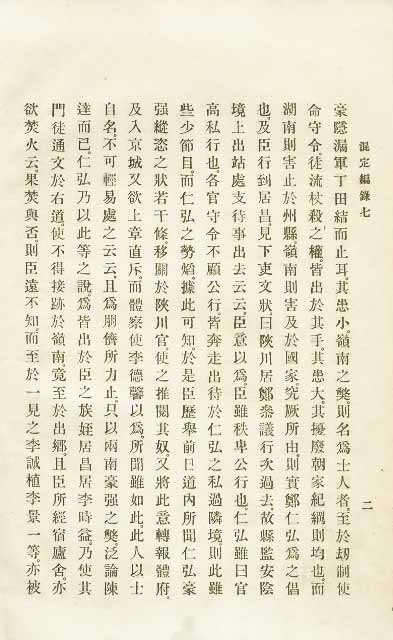 混定編錄七
二
豪隱漏軍丁田結而止耳。其患小。嶺南之獘。則名爲士人者。至於刼制使
命守令。徒流杖殺之權。皆出於其手。其患大。其擾廢朝家紀綱則均也。而
湖南則害止於州縣。嶺南則害及於國家。究厥所由。則實鄭仁弘爲之倡
也。及臣行到居昌。見下吏文狀。曰陜川居鄭參議行次過去。故縣監安陰
境上出站處支待事出去云云。臣意以爲。臣雖秩卑公行也。仁弘雖曰官
高私行也。各官守令不顧公行。皆奔走出待於仁弘之私過隣境。則此雖
些少節目。而仁弘之勢焰。據此可知。於是臣歷舉前日道內所聞仁弘豪
强縱恣之狀若干條。移關於陜川官。使之推閱其奴。又將此意轉報體府。
及入京城。又欲上章直斥。而體察使李德馨以爲。所聞雖如此。此人以士
自名。不可輕易處之云云。且爲朋儕所力止。只以兩南豪强之獘。泛論陳
達而已。仁弘乃以此等之說。爲皆出於臣之族姪居昌居李時益。乃使其
門徒通文於右道。使不得接跡於嶺南。竟至於出鄕。且臣所經宿廬舍。亦
欲焚火云。果焚與否。則臣遠不知。而至於一見之李誠植李景一等。亦被